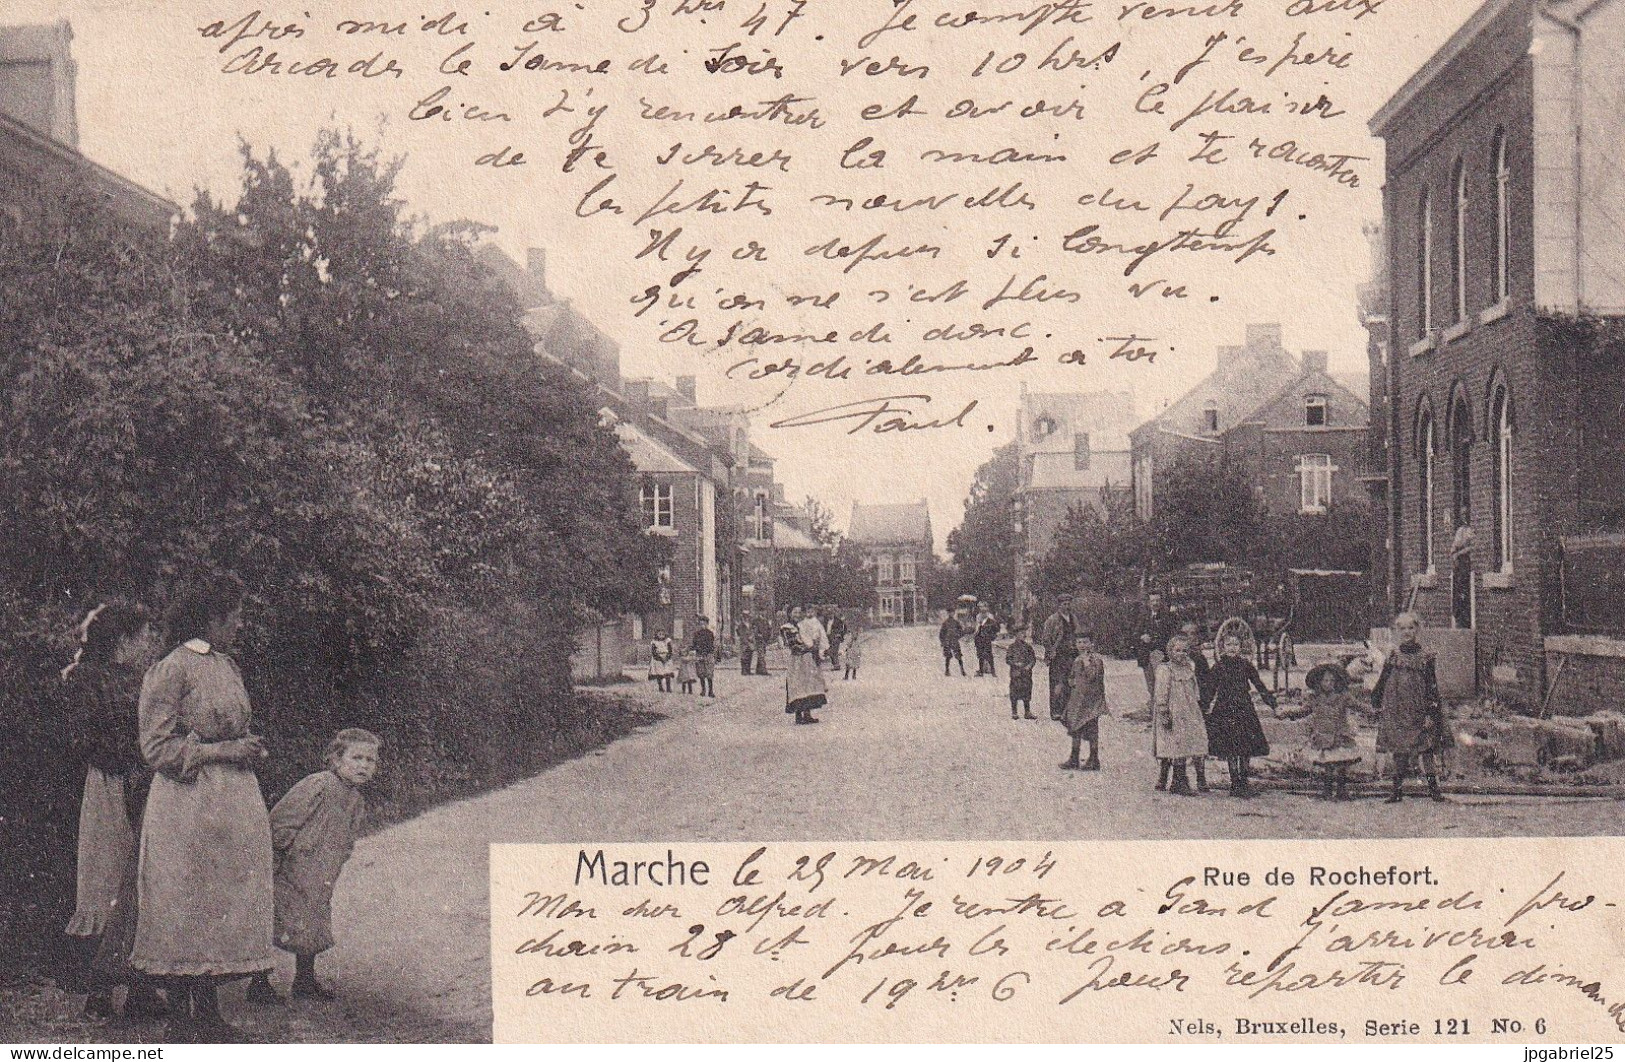 après midi à 3 hrs 47. Je compte venir aux
Arcades le samedi soir vers 10 hrs, J'espère
bien t'y rencontrer et avoir le plaisir
de te serrer la main et te raconter
les petites nouvelles du pays.
Il y a depuis si longtemps
qu'on ne s'est plus vu.
A samedi donc.
Cordialement à toi.
Paul.
Marche le 25 Mai 1904
Rue de Rochefort.
Mon cher Alfred. Je rentre à Gand Samedi pro-
chain 28 ct pour les élections. J'arriverai
au train de 19 hrs 6 pour repartir le dimanche
Nels, Bruxelles, Serie 121 No. 6
jpgabriel25